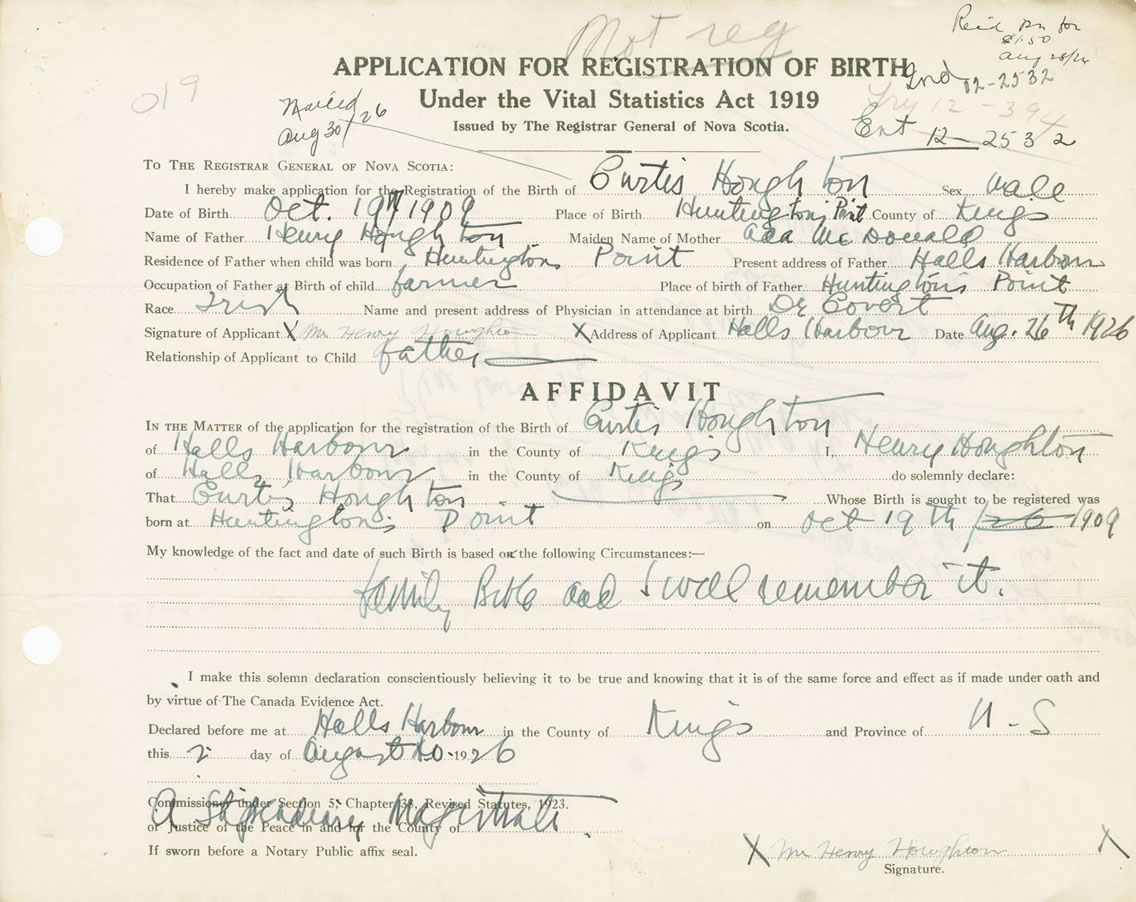 Not reg
APPLICATION FOR REGISTRATION OF BIRTH
Under the Vital Statistics Act 1919
Issued by The Registrar General of Nova Scotia.
$1.50
12-2532
019
Mailed
Aug 30/26
12-394
Ent 12-2532
To The Registrar General of Nova Scotia:
I hereby make application for the Registration of the Birth of Curtis Houghton Sex Male
Date of Birth Oct. 19th 1909 Place of Birth Huntingtons Point County of Kings
Name of Father Henry Houghton Maiden Name of Mother Ada McDonald
Residence of Father when child was born Huntingtons Point Present address of Father Halls Harbour
Occupation of Father at Birth of child farmer Place of birth of Father Huntingtons Point
Race Irish Name and present address of Physician in attendance at birth Dr Covert
Signature of Applicant X Mr Henry Houghton X Address of Applicant Halls Harbour Date Aug. 26th 1926
Relationship of Applicant to Child father
AFFIDAVIT
In the Matter of the application for the registration of the Birth of Curtis Houghton
of Halls Harbour in the County of Kings I, Henry Houghton
of Halls Harbour in the County of Kings do solemnly declare:
That Curtis Houghton Whose Birth is sought to be registered was
born at Huntingtons Point on Oct 19th 1909
My knowledge of the fact and date of such Birth is based on the following Circumstances:—
family Bible and I well remember it.
I make this solemn declaration conscientiously believing it to be true and knowing that it is of the same force and effect as if made under oath and
by virtue of The Canada Evidence Act.
Declared before me at Halls Harbour in the County of Kings and Province of N-S
this day of August 1926
Commissioner under Section 5, Chapter 38, Revised Statutes, 1923.
A Stipendiary Magistrate
or Justice of the Peace in and for the County of
If sworn before a Notary Public affix seal.
X Mr Henry Houghton X
Signature.